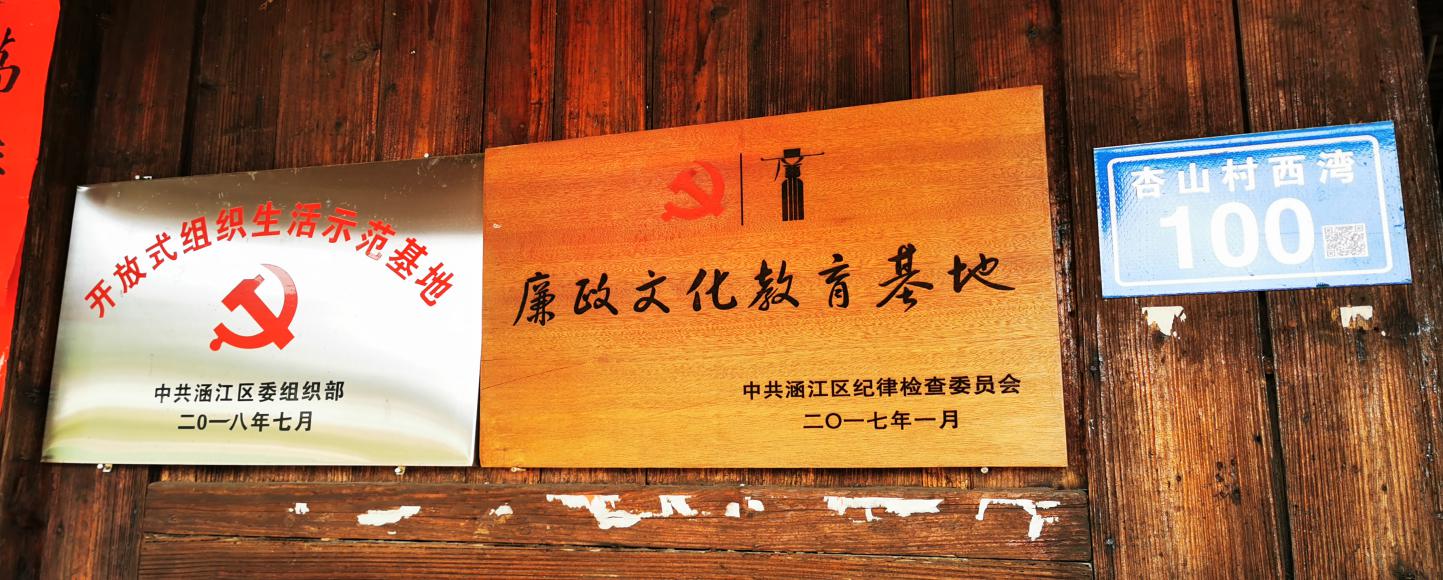 开放式组织生活示范基地
中共涵江区委组织部
二0一八年七月
廉
廉政文化教育基地
中共涵江区纪律检查委员会
二〇一七年一月
杏山村西湾
100